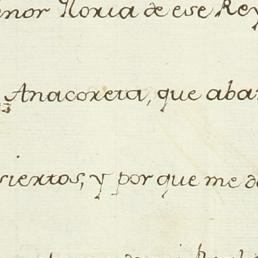 nor Noria de ese Rey
Anacoreta, que aba
siertos, y por que me d